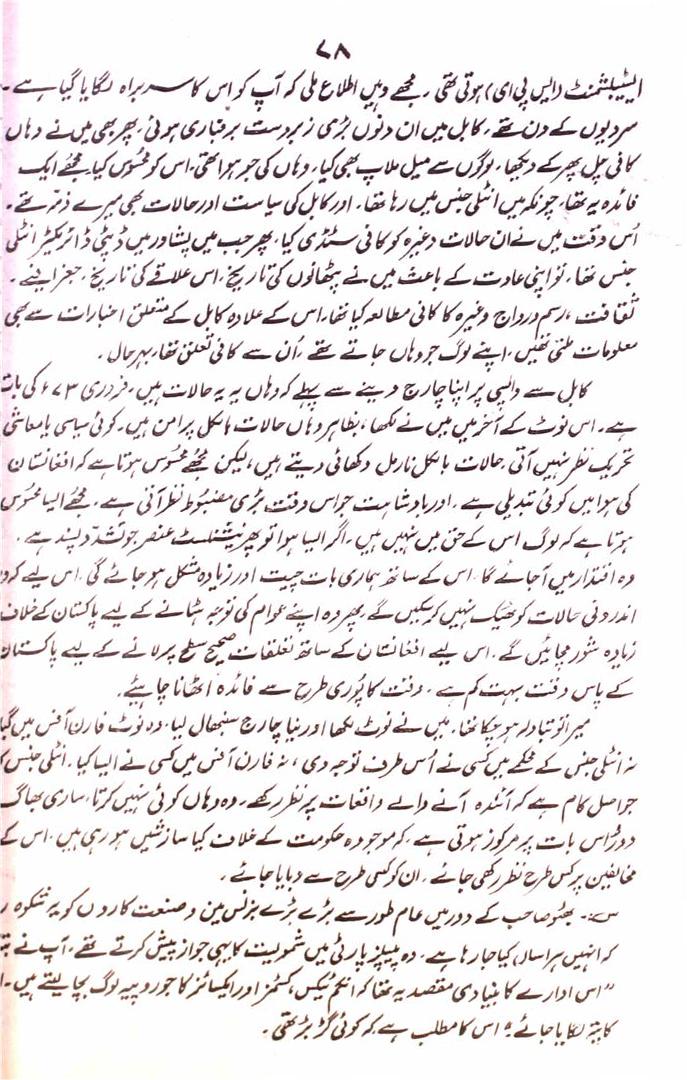 ۷۸
اسٹیبلشمنٹ (ایس پی ای) ہوتی تھی ۔ مجھے وہیں اطلاع ملی کہ آپ کو اس کا سربراہ لگایا گیا ہے ۔
سردیوں کے دن تھے، کابل میں ان دنوں بڑی زبردست برفباری ہوئی، پھر بھی میں نے وہاں
کافی چل پھر کے دیکھا، لوگوں سے میل ملاپ بھی کیا، وہاں کی جو ہوا تھی، اس کو محسوس کیا، مجھے ایک
فائدہ یہ تھا، چونکہ میں انٹلی جنس میں رہا تھا، اور کابل کی سیاست اور حالات بھی میرے ذمہ تھے ۔
اُس وقت میں نے ان حالات وغیرہ کو کافی سٹڈی کیا، پھر جب میں پشاور میں ڈپٹی ڈائریکٹر انٹلی
جنس تھا، تو اپنی عادت کے باعث میں نے پٹھانوں کی تاریخ، اس علاقے کی تاریخ، جغرافیے ۔
ثقافت، رسم و رواج وغیرہ کا کافی مطالعہ کیا تھا، اس کے علاوہ کابل کے متعلق اخبارات سے بھی
معلومات ملتی تھیں، اپنے لوگ جو وہاں جاتے تھے، اُن سے کافی تعلق تھا، بہرحال ۔
کابل سے واپسی پر اپنا چارج دینے سے پہلے کہ وہاں یہ یہ حالات ہیں، فروری ۷۳ء کی بات
ہے ۔ اس نوٹ کے آخر میں میں نے لکھا، بظاہر وہاں حالات بالکل پرامن ہیں۔ کوئی سیاسی یا معاشی
تحریک نظر نہیں آتی، حالات بالکل نارمل دکھائی دیتے ہیں، لیکن مجھے محسوس ہوتا ہے کہ افغانستان
کی ہوا میں کوئی تبدیلی ہے ۔ اور بادشاہت جو اس وقت بڑی مضبوط نظر آتی ہے، مجھے ایسا محسوس
ہوتا ہے کہ لوگ اس کے حق میں نہیں ہیں، اگر ایسا ہوا تو پھر نیشنلسٹ عنصر جو تشدّد پسند ہے ۔
وہ اقتدار میں آ جائے گا ۔ اس کے ساتھ ہماری بات چیت اور زیادہ مشکل ہو جائے گی ۔ اس لیے کہ وہ
اندرونی حالات کو ٹھیک نہیں کر سکیں گے، پھر وہ اپنے عوام کی توجہ ہٹانے کے لیے پاکستان کے خلاف
زیادہ شور مچائیں گے ۔ اس لیے افغانستان کے ساتھ تعلقات صحیح سطح پر لانے کے لیے پاکستان
کے پاس وقت بہت کم ہے ۔ وقت کا پوری طرح سے فائدہ اٹھانا چاہیئے ۔
میرا تو تبادلہ ہو چکا تھا، میں نے نوٹ لکھا اور نیا چارج سنبھال لیا، وہ نوٹ فارن آفس میں گیا
نہ انٹلی جنس کے محکمے میں کسی نے اُس طرف توجہ دی، نہ فارن آفس میں کسی نے ایسا کیا ۔ انٹلی جنس کا
جو اصل کام ہے کہ آئندہ آنے والے واقعات پر نظر رکھے ۔ وہ وہاں کوئی نہیں کرتا، ساری بھاگ
دوڑ اس بات پر مرکوز ہوتی ہے، کہ موجودہ حکومت کے خلاف کیا سازشیں ہو رہی ہیں، اس کے
مخالفین پر کس طرح نظر رکھی جائے ۔ ان کو کس طرح سے دبایا جائے ۔
س:۔ بھٹو صاحب کے دور میں عام طور سے بڑے بڑے بزنس مین و صنعت کاروں کو یہ شکوہ
کہ انہیں ہراساں کیا جا رہا ہے ۔ وہ پیپلز پارٹی میں شمولیت کا یہی جواز پیش کرتے تھے، آپ نے
"اس ادارے کا بنیادی مقصد یہ تھا کہ انکم ٹیکس، کسٹمز اور ایکسائز کا جو روپیہ لوگ بچا لیتے ہیں ۔
کا پتہ لگایا جائے" اس کا مطلب ہے کہ کوئی گڑ بڑ تھی ۔